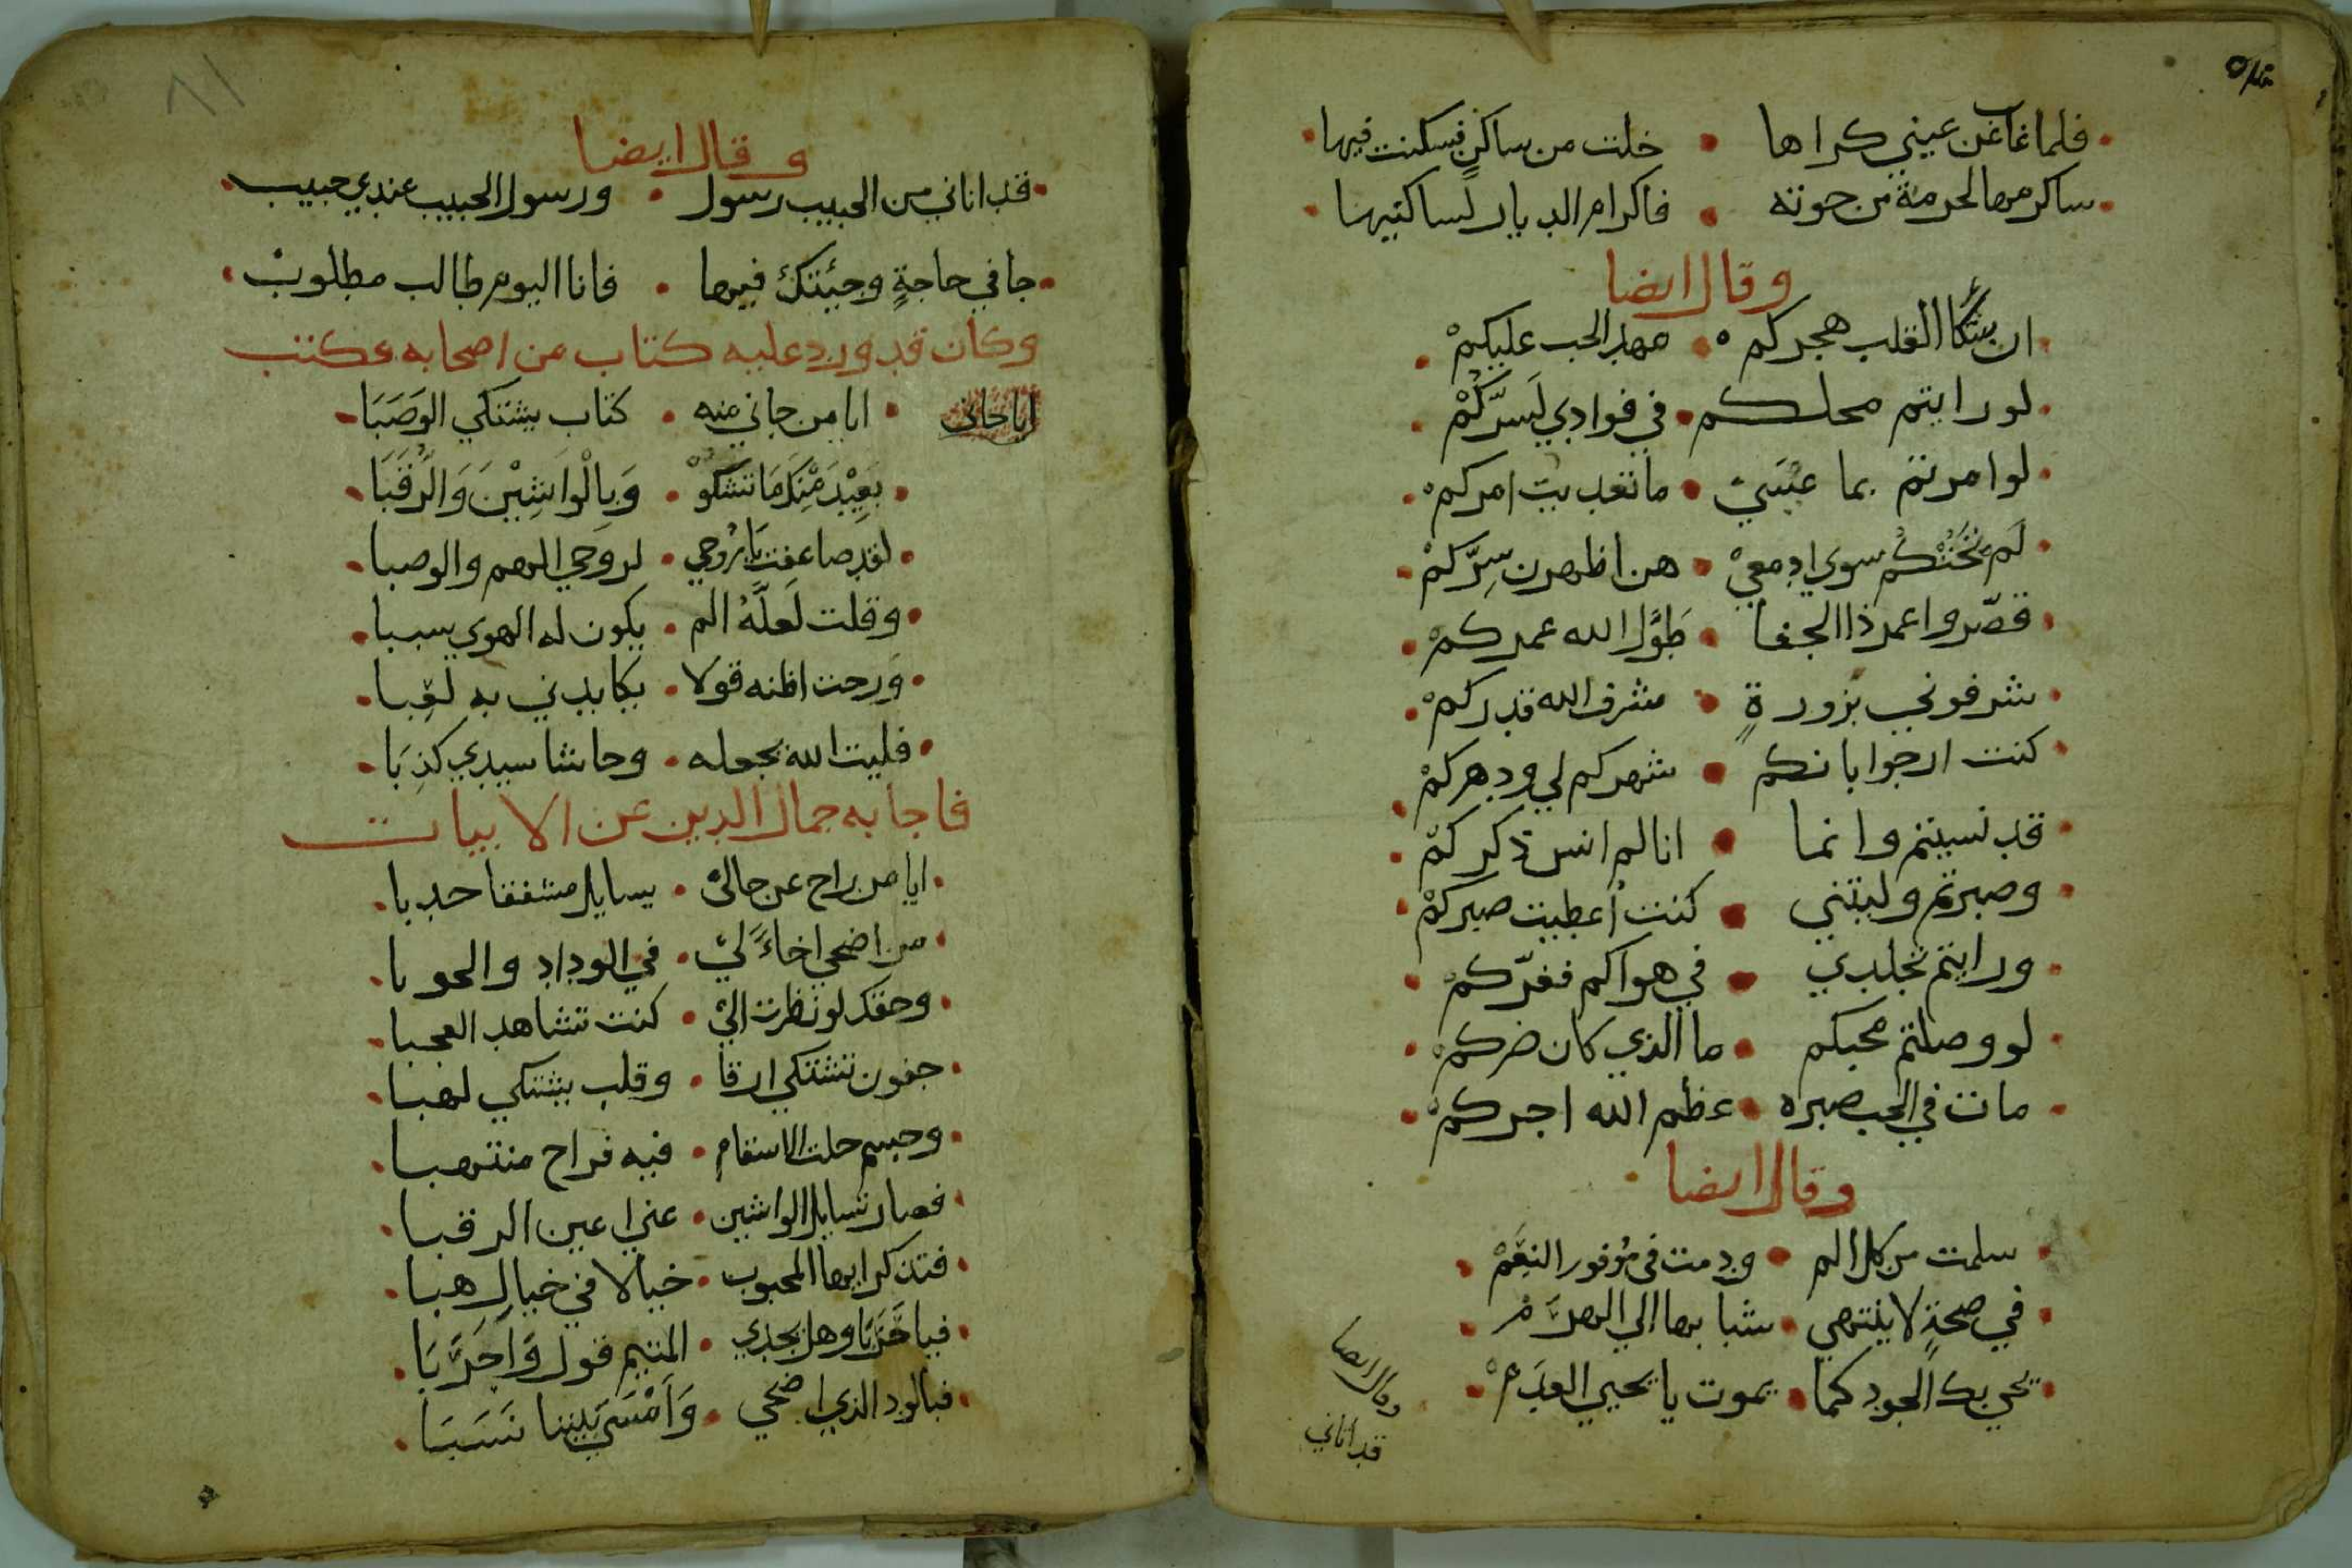 فلما غاب عن عيني كراها • خلت من ساكن فسكنت فيها
ساكرمها لحرمة من حوته • فاكرام الديار لساكنيها
وقال ايضا
ان شكا القلب هجركم • مهد الحب عليكم
لو رايتم محلكم • في فوادي لسركم
لو امرتم بما عسى • ما تعديت امركم
لم تخنكم سوى ادمعي • هن اظهرن سركم
قصروا عمر ذا الجفا • طول الله عمركم
شرفوني بزورة • شرف الله قدركم
كنت ارجوا بانكم • شهركم لي ودهركم
قد نسيتم وانما • انا لم انس ذكركم
وصبرتم وليتني • كنت اعطيت صبركم
ورايتم تجلدي • في هواكم فغركم
لو وصلتم محبكم • ما الذي كان ضركم
مات في الحب صبره • عظم الله اجركم
وقال ايضا
سلمت من كل الم • ودمت في موفور النعم
في صحة لا ينتهي • شبابها الى الهرم
يحي بك الجود كما • يموت يا يحيي العدم
وقال ايضا
قد اتاني
٨١
وقال ايضا
قد اتاني من الحبيب رسول • ورسول الحبيب عندي حبيب
جا في حاجة وجئتك فيها • فانا اليوم طالب مطلوب
وكان قد ورد عليه كتاب من اصحابه مكتب
ايا جاني • ايا من جاني منه • كتاب يشتكي الوصبا
بعيد منك ما تشكو • وبالواشين والرقبا
لقد ضاعفت يا روحي • لروحي الهم والوصبا
وقلت لعله الم • يكون له الهوى سببا
ورحت اظنه قولا • يكايدني به لعبا
فليت الله يجعله • وحاشا سيدي كذبا
فاجابه جمال الدين عن الابيات
ايا من راح عن حالي • يسايل مشفقا حدبا
من اضحى اخا لي • في الوداد وابا
وحقك لو نظرت الي • كنت تشاهد العجبا
جفون تشتكي ارقا • وقلب يشتكي لهبا
وجسم حلت الاسقام • فيه فراح منتهبا
فصار تسايل الواشين • عني اعين الرقبا
فتذكر ايها المحبوب • خيالا في خيال هبا
فيا حربا وهل يجدي • المتيم قول واحربا
فبالود الذي اضحى • وامسى بيننا نسبا